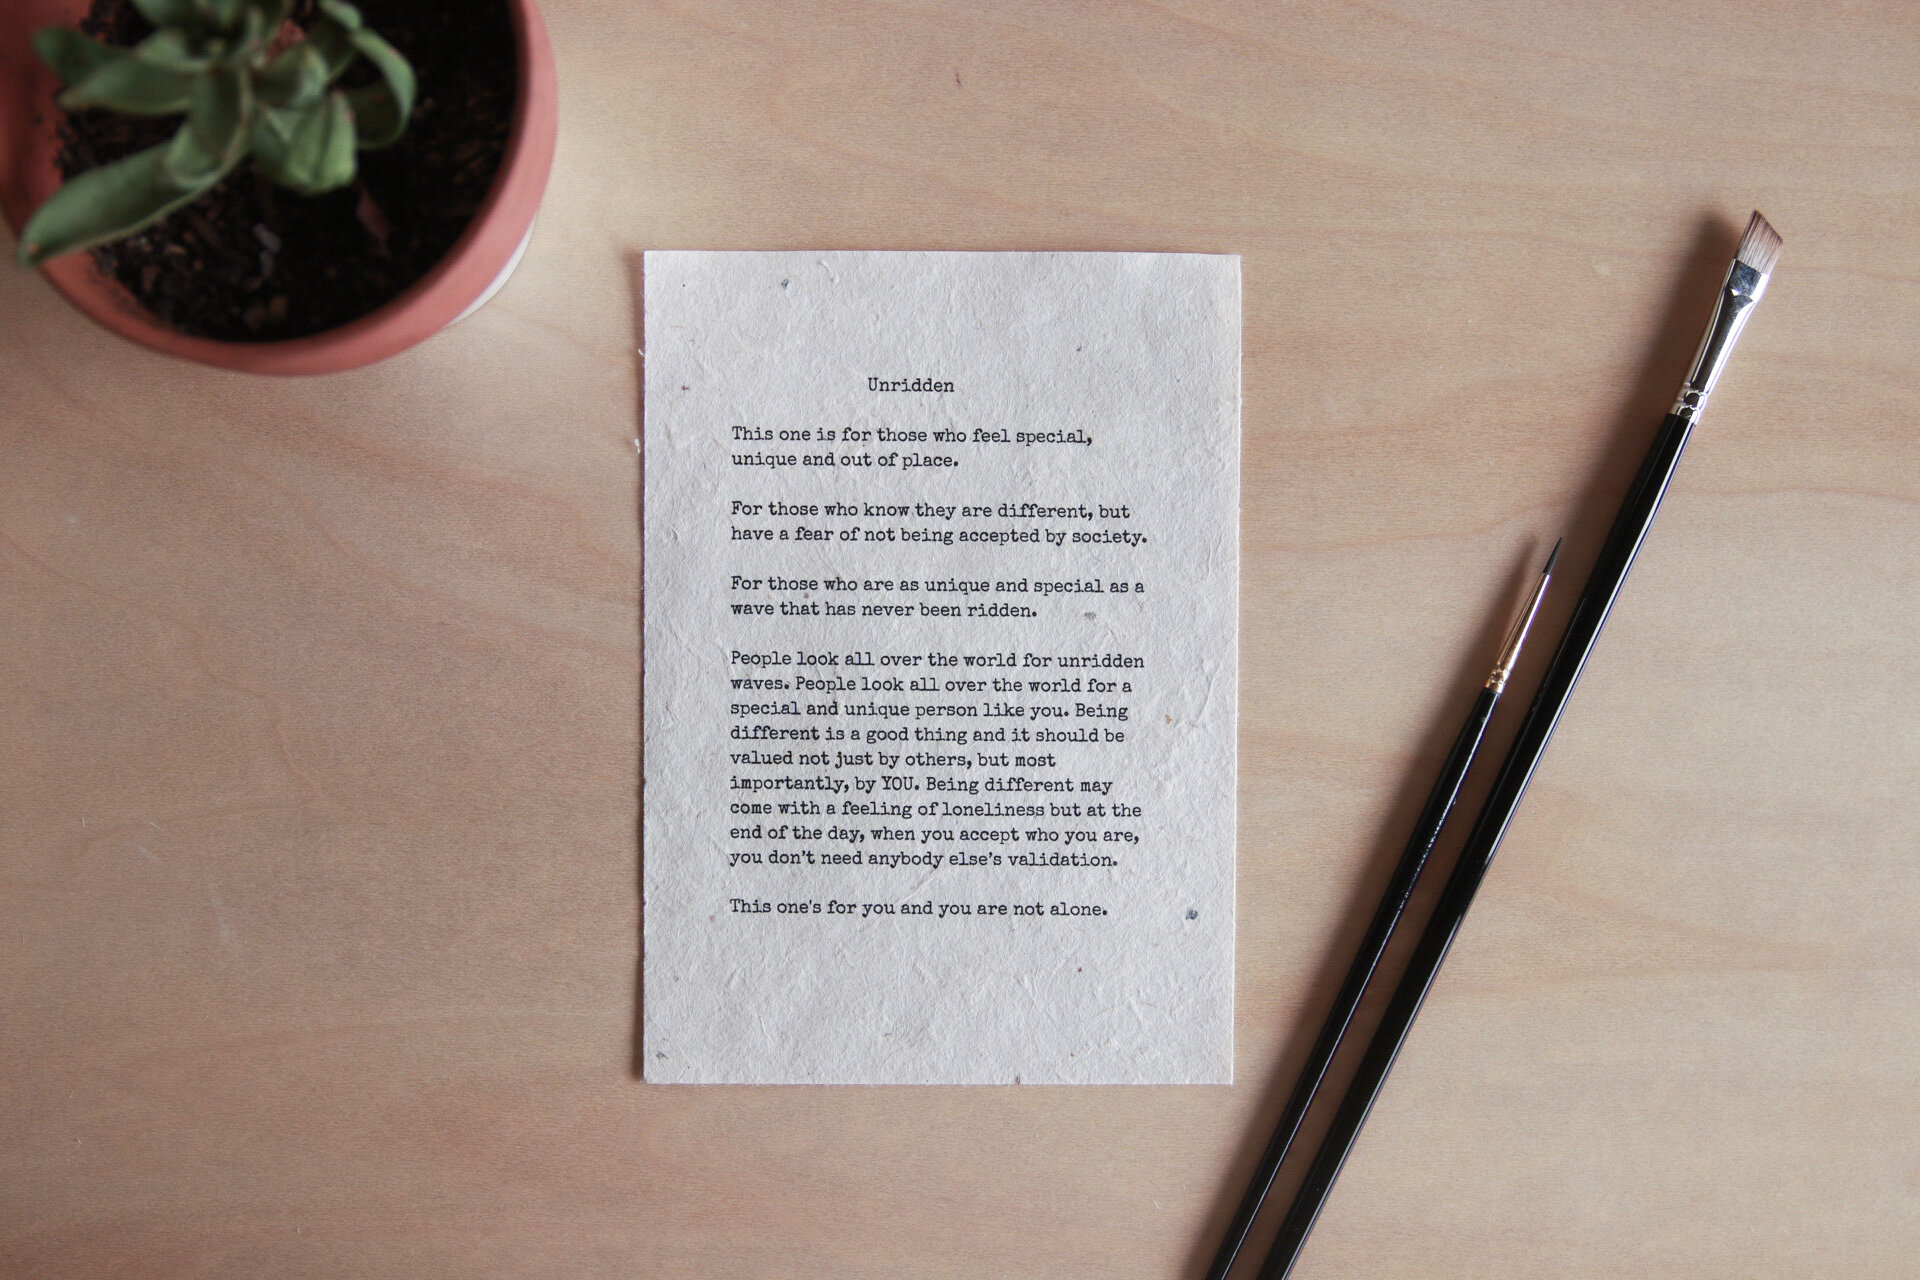 Unridden
This one is for those who feel special,
unique and out of place.
For those who know they are different, but
have a fear of not being accepted by society.
For those who are as unique and special as a
wave that has never been ridden.
People look all over the world for unridden
waves. People look all over the world for a
special and unique person like you. Being
different is a good thing and it should be
valued not just by others, but most
importantly, by YOU. Being different may
come with a feeling of loneliness but at the
end of the day, when you accept who you are,
you don’t need anybody else’s validation.
This one's for you and you are not alone.